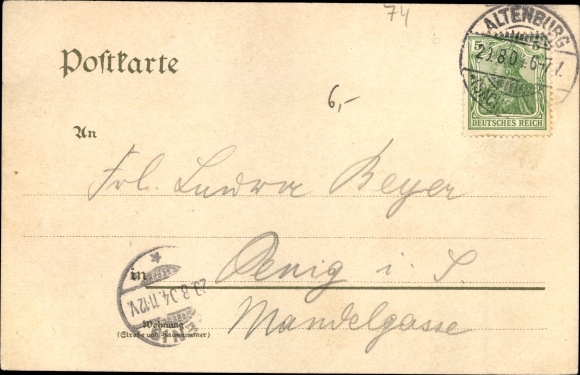 74
ALTENBURG
29.8.04.6-7
5
DEUTSCHES REICH
Postkarte
6,-
An
Frl. Ludwa Beyer
in Penig i. S.
29.8.04.11-12V.
Mandelgasse
Wohnung
(Straße und Hausnummer)